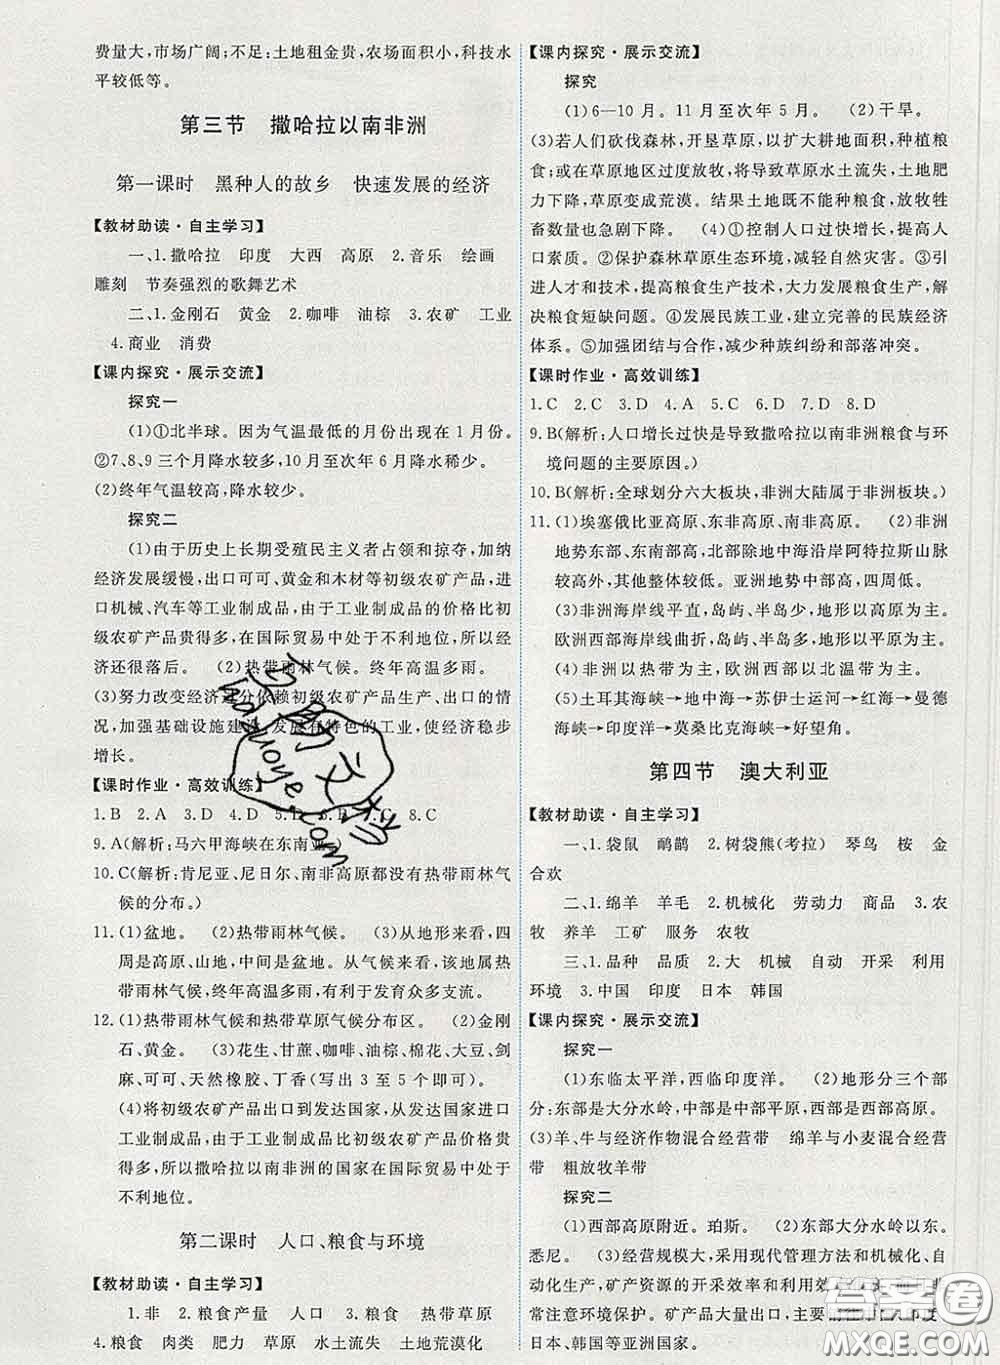 费量大,市场广阔;不足:土地租金贵,农场面积小,科技水
平较低等。
第三节 撒哈拉以南非洲
第一课时 黑种人的故乡 快速发展的经济
【教材助读·自主学习】
一、1.撒哈拉 印度 大西 高原 2.音乐 绘画
雕刻 节奏强烈的歌舞艺术
二、1.金刚石 黄金 2.咖啡 油棕 3.农矿 工业
4.商业 消费
【课内探究·展示交流】
探究一
(1)①北半球。因为气温最低的月份出现在1月份。
②7、8、9三个月降水较多,10月至次年6月降水稀少。
(2)终年气温较高,降水较少。
探究二
(1)由于历史上长期受殖民主义者占领和掠夺,加纳
经济发展缓慢,出口可可、黄金和木材等初级农矿产品,进
口机械、汽车等工业制成品,由于工业制成品的价格比初
级农矿产品贵得多,在国际贸易中处于不利地位,所以
经济还很落后。 (2)热带雨林气候。终年高温多雨。
(3)努力改变经济过分依赖初级农矿产品生产、出口的情
况,加强基础设施建设,发展有特色的工业,使经济稳步
增长。
【课时作业·高效训练】
1.B 2.A 3.D 4.D 5.D 6.B 7.C 8.C
9.A(解析:马六甲海峡在东南亚。)
10.C(解析:肯尼亚、尼日尔、南非高原都没有热带雨林气
候的分布。)
11.(1)盆地。 (2)热带雨林气候。 (3)从地形来看,四
周是高原、山地,中间是盆地。从气候来看,该地属热
带雨林气候,终年高温多雨,有利于发育众多支流。
12.(1)热带雨林气候和热带草原气候分布区。 (2)金刚
石、黄金。 (3)花生、甘蔗、咖啡、油棕、棉花、大豆、剑
麻、可可、天然橡胶、丁香(写出3至5个即可)。
(4)将初级农矿产品出口到发达国家,从发达国家进口
工业制成品,由于工业制成品比初级农矿产品价格贵
得多,所以撒哈拉以南非洲的国家在国际贸易中处于
不利地位。
第二课时 人口、粮食与环境
【教材助读·自主学习】
1.非 2.粮食产量 人口 3.粮食 热带草原
4.粮食 肉类 肥力 草原 水土流失 土地荒漠化
【课内探究·展示交流】
探究
(1)6—10月。11月至次年5月。 (2)干旱。
(3)若人们砍伐森林,开垦草原,以扩大耕地面积,种植粮
食;或在草原地区过度放牧,将导致草原水土流失,土地肥
力下降,草原变成荒漠。结果土地既不能种粮食,放牧牲
畜数量也急剧下降。 (4)①控制人口过快增长,提高人
口素质。②保护森林草原生态环境,减轻自然灾害。③引
进人才和技术,提高粮食生产技术,大力发展粮食生产,解
决粮食短缺问题。④发展民族工业,建立完善的民族经济
体系。⑤加强团结与合作,减少种族纠纷和部落冲突。
【课时作业·高效训练】
1.C 2.C 3.D 4.A 5.C 6.D 7.D 8.D
9.B(解析:人口增长过快是导致撒哈拉以南非洲粮食与环
境问题的主要原因。)
10.B(解析:全球划分六大板块,非洲大陆属于非洲板块。)
11.(1)埃塞俄比亚高原、东非高原、南非高原。 (2)非洲
地势东部、东南部高,北部除地中海沿岸阿特拉斯山脉
较高外,其他大部较低。亚洲地势中部高,四周低。
(3)非洲海岸线平直,岛屿、半岛少,地形以高原为主。
欧洲西部海岸线曲折,岛屿、半岛多,地形以平原为主。
(4)非洲以热带为主,欧洲西部以北温带为主。
(5)土耳其海峡→地中海→苏伊士运河→红海→曼德
海峡→印度洋→莫桑比克海峡→好望角。
第四节 澳大利亚
【教材助读·自主学习】
一、1.袋鼠 鸸鹋 2.树袋熊(考拉) 琴鸟 桉 金
合欢
二、1.绵羊 羊毛 2.机械化 劳动力 商品 3.农
牧 养羊 工矿 服务 农牧
三、1.品种 品质 2.大 机械 自动 开采 利用
环境 3.中国 印度 日本 韩国
【课内探究·展示交流】
探究一
(1)东临太平洋,西临印度洋。 (2)地形分三个部
分:东部是大分水岭,中部是中部平原,西部是西部高原。
(3)羊、牛与经济作物混合经营带 绵羊与小麦混合经营
带 粗放牧羊带
探究二
(1)西部高原附近。珀斯。 (2)东部大分水岭以东。
悉尼。 (3)经营规模大,采用现代管理方法和机械化、自
动化生产,矿产资源的开采效率和利用效
常注意环境保护。矿产品大量出口,主要
日本、韩国等亚洲国家。
答案圈
MXQE.COM